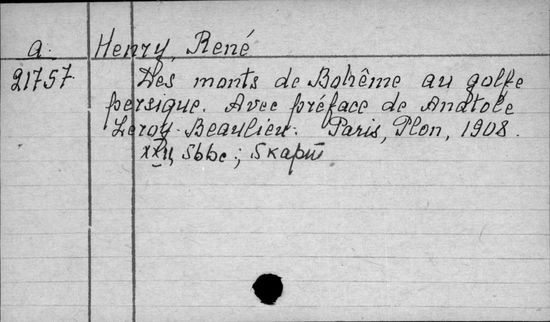 a. Henry, René
21757. Des monts de Bohême au golfe
persique. Avec préface de Anatole
Leroy-Beaulieu. Paris, Plon, 1908.
566c; 5 карт